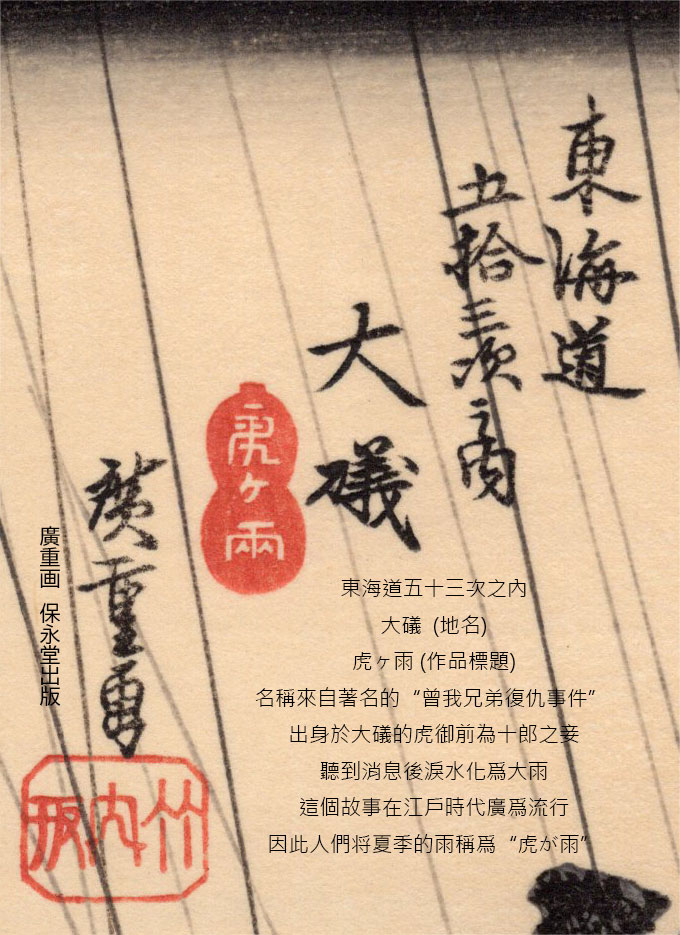 東海道
五拾三次之内
大礒
虎ヶ雨
廣重画
竹内板
廣重画 保永堂出版
東海道五十三次之內
大礒 (地名)
虎ヶ雨 (作品標題)
名稱來自著名的“曾我兄弟復仇事件”
出身於大礒的虎御前為十郎之妾
聽到消息後淚水化爲大雨
這個故事在江戶時代廣爲流行
因此人們将夏季的雨稱爲“虎が雨”